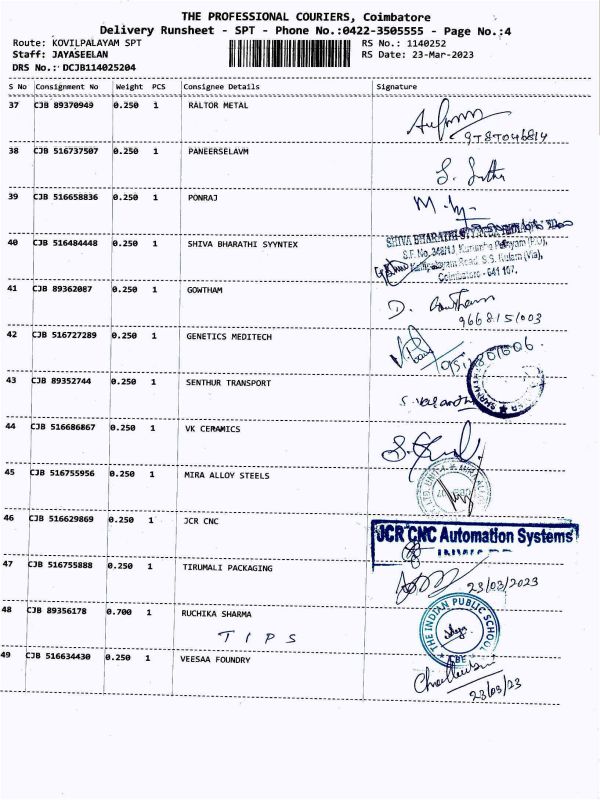 THE PROFESSIONAL COURIERS, Coimbatore
Delivery Runsheet - SPT - Phone No.:0422-3505555 - Page No.:4
Route: KOVILPALAYAM SPT RS No.: 1140252
Staff: JAYASEELAN RS Date: 23-Mar-2023
DRS No.: DCJB114025204
S No Consignment No Weight PCS Consignee Details Signature
37 CJB 89370949 0.250 1 RALTOR METAL
38 CJB 516737507 0.250 1 PANEERSELAVM
39 CJB 516658836 0.250 1 PONRAJ
40 CJB 516484448 0.250 1 SHIVA BHARATHI SYYNTEX
SHIVA BHARATHI SYYNTEX
Coimbatore - 641 107.
41 CJB 89362087 0.250 1 GOWTHAM D. Gowtham
9668151003
42 CJB 516727289 0.250 1 GENETICS MEDITECH
43 CJB 89352744 0.250 1 SENTHUR TRANSPORT
44 CJB 516686867 0.250 1 VK CERAMICS
45 CJB 516755956 0.250 1 MIRA ALLOY STEELS
46 CJB 516629869 0.250 1 JCR CNC JCR CNC Automation Systems
47 CJB 516755888 0.250 1 TIRUMALI PACKAGING 23/03/2023
48 CJB 89356178 0.700 1 RUCHIKA SHARMA THE INDIAN PUBLIC SCHOOL
TIPS CBE
49 CJB 516634430 0.250 1 VEESAA FOUNDRY
23/03/23